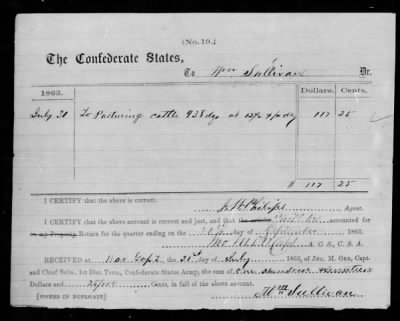 [No. 19.]
The Confederate States,
To Wm Sullivan Dr.
1863. Dollars. Cents.
July 31 To Pasturing cattle 938 dys at 12½ ¢ pr day 117 25
$ 117 25
I CERTIFY that the above account is correct.
J. H. Philips Agent.
I CERTIFY that the above account is correct and just, and that the article accounted for
on my Property Return for the quarter ending on the 30th day of September 1863.
Capt A. C. S., C. S. A.
RECEIVED at War Gap 2 the 31st day of July 1863, of JNO. M. ORR, Capt.
and Chief Subs., 1st Dist. Tenn., Confederate States Army, the sum of One Hundred & Seventeen
Dollars and 25/100 Cents, in full of the above account.
[SIGNED IN DUPLICATE] Wm Sullivan